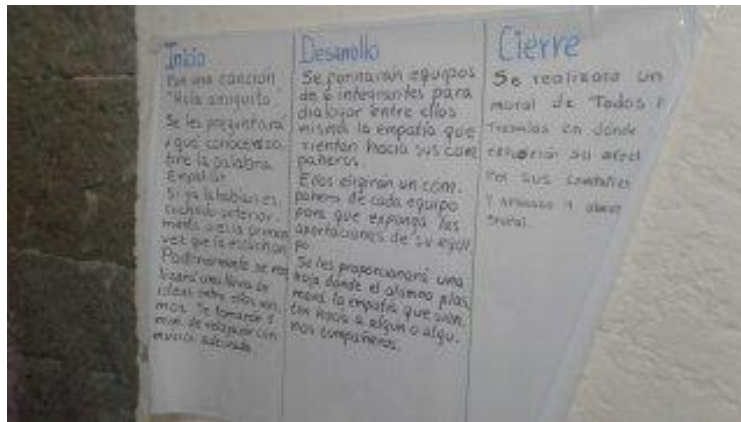 Inicio
Con una canción
"Hola amiguito
Se les preguntará
¿qué conocen so.
bre la palabra
Empatía?
Si ya la habían es.
cuchado anterior.
mente o es la primera
vez que la escuchan
Posteriormente se rea
lizará una lluvia de
ideas entre ellos mis.
mos. Se tomaran 5
min. de relajación con
música adecuada.
Desarrollo
Se formaran equipos
de 6 integrantes para
dialogar entre ellos
mismos la empatía que
sientan hacia sus com
pañeros
Ellos eligiran un com.
pañero de cada equipo
para que exponga las
aportaciones de su equi
po
Se les proporcionará una
hoja donde el alumno plas
mará la empatía que sien
ten hacia a algun o algu.
nos compañeros.
Cierre
Se realizara un
mural de Todos
en donde
su afect
Por sus
Y